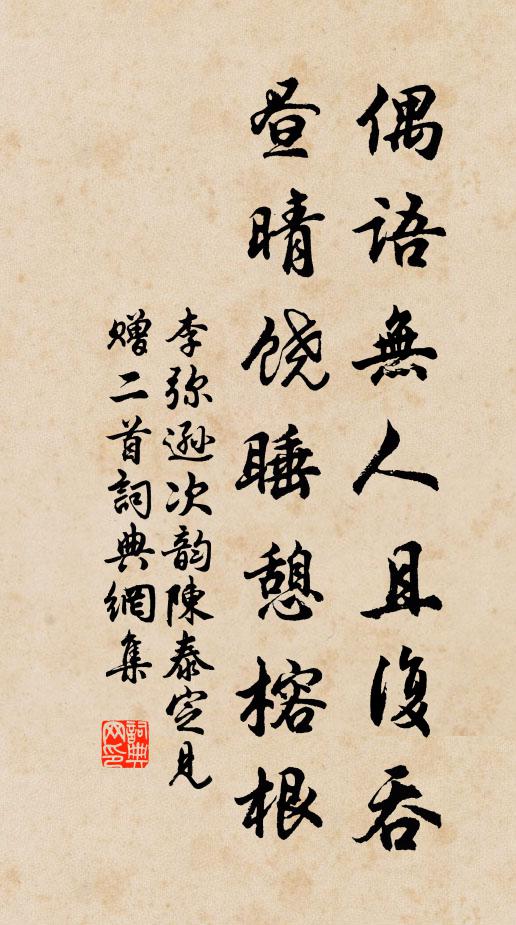 偶語無人且復吞
昼晴饶睡憩榕根
李弥遜次韵陳泰定見
赠二首詞典網集
詞典网印